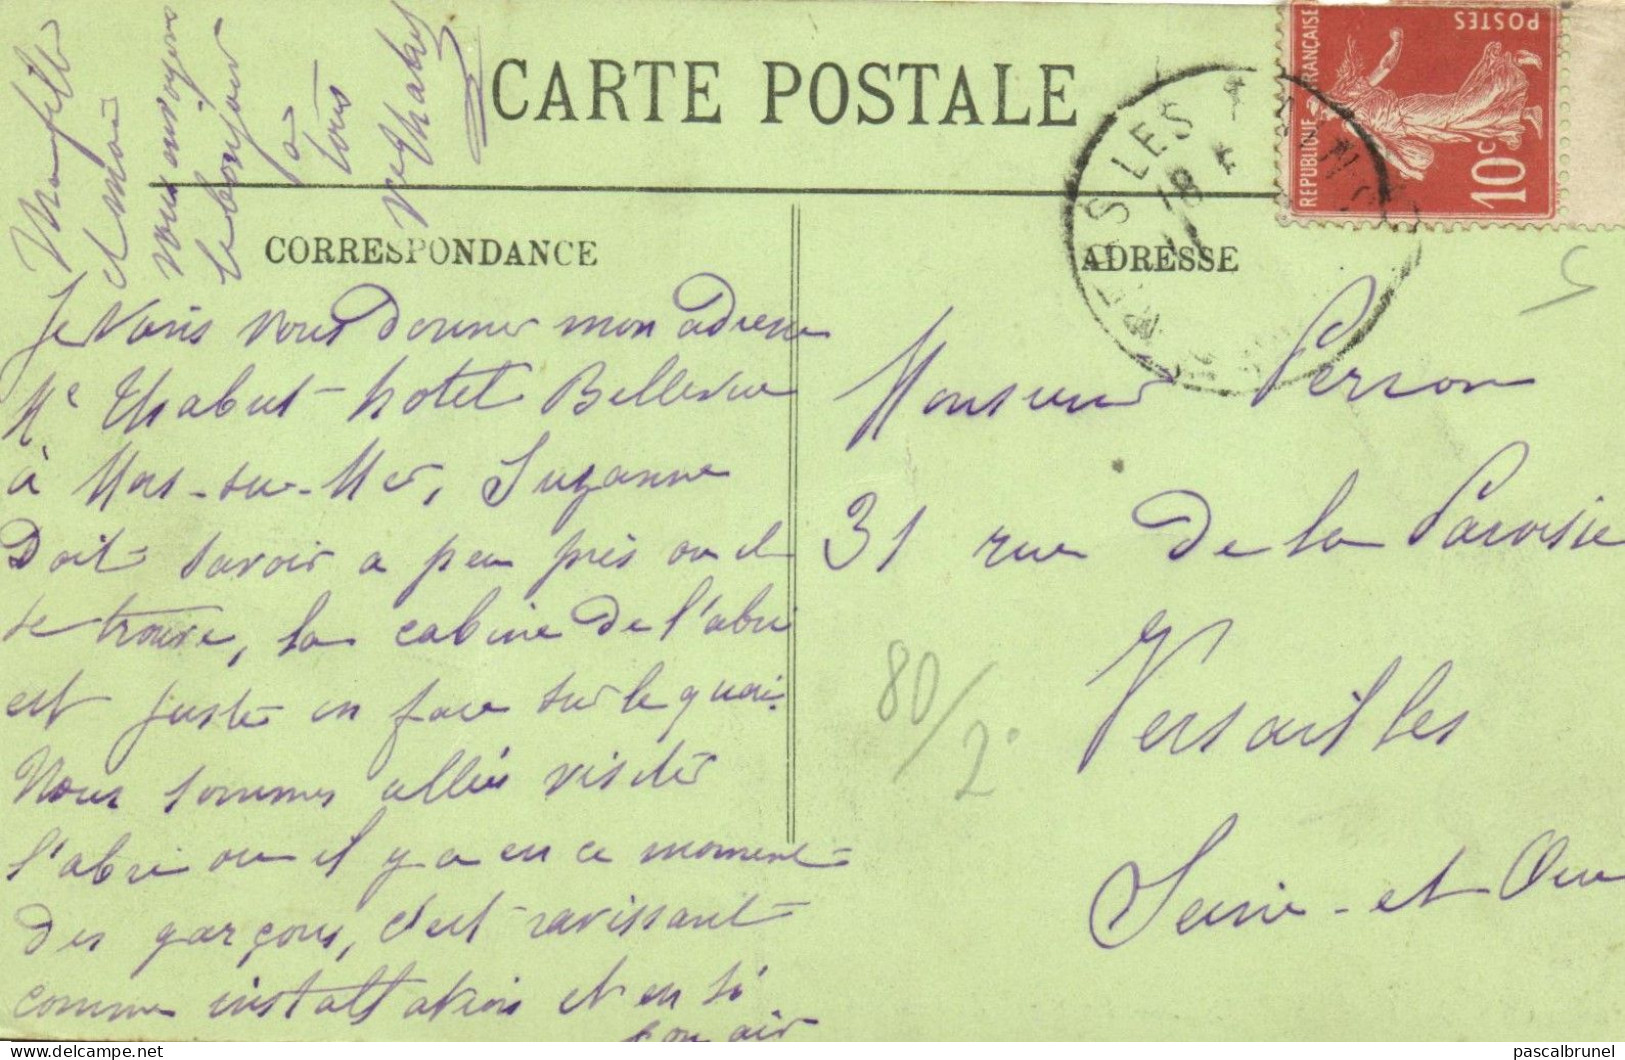 CARTE POSTALE
CORRESPONDANCE
ADRESSE
REPUBLIQUE FRANÇAISE
POSTES
10c
S LES
18
Je vais vous donner mon adresse
Me Thabut hotel Bellevue
à sur-Mer, Suzanne
Doit savoir a peu près ou il
se trouve, la cabine de l'abri
est juste en face sur le quai.
Nous sommes allés visiter
l'abri ou il y a en ce moment
des garçons, c'est ravissant
comme installation et en si
bon air
Ma fille
et moi
vous envoyons
le bonjour
à
tous
Thabut
Monsieur Perron
31 rue de la Paroisse
Versailles
Seine-et Oise
80/2
pascalbrunel